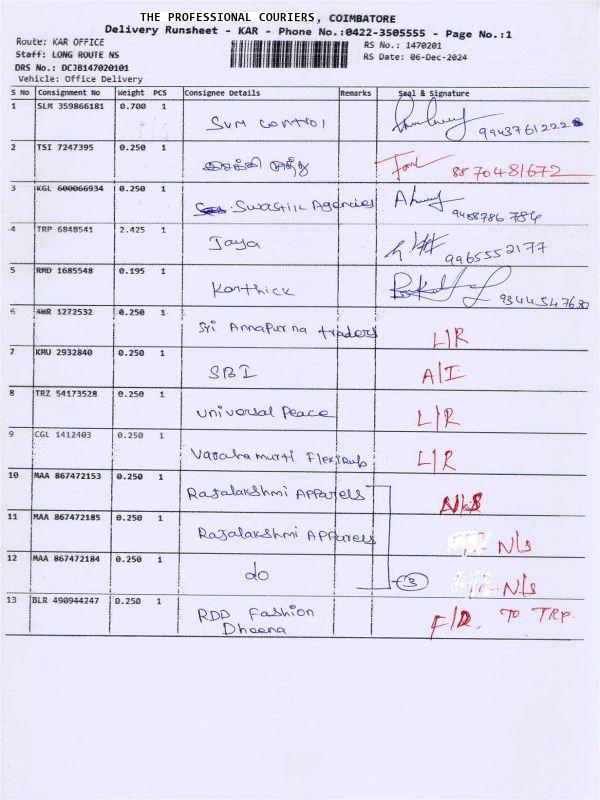 THE PROFESSIONAL COURIERS, COIMBATORE
Delivery Runsheet - KAR - Phone No.:0422-3505555 - Page No.:1
Route: KAR OFFICE
RS No.: 1470201
Staff: LONG ROUTE NS
RS Date: 06-Dec-2024
DRS No.: DCJB147020101
Vehicle: Office Delivery
S No Consignment No Weight PCS Consignee Details Remarks Seal & Signature
1 SLM 359866181 0.700 1 SVM control 9943761222
2 TSI 7247395 0.250 1 8870481672
3 KGL 600066934 0.250 1 Swastik Agencies
4 TRP 6848541 2.425 1 Jaya 9965552177
5 RMD 1685548 0.195 1 Karthick 9344547630
6 AWR 1272532 0.250 1 Sri Annapurna traders L/R
7 KMU 2932840 0.250 1 SBI A/I
8 TRZ 54173528 0.250 1 universal Peace L/R
9 CGL 1412403 0.250 1 Varahamurti L/R
10 MAA 867472153 0.250 1 Rajalakshmi Apparels N/S
11 MAA 867472185 0.250 1 Rajalakshmi Apparels N/S
12 MAA 867472184 0.250 1 do 3 N/S
13 BLR 490944247 0.250 1 RDD Fashion F/D. TO TRP.
Dheena